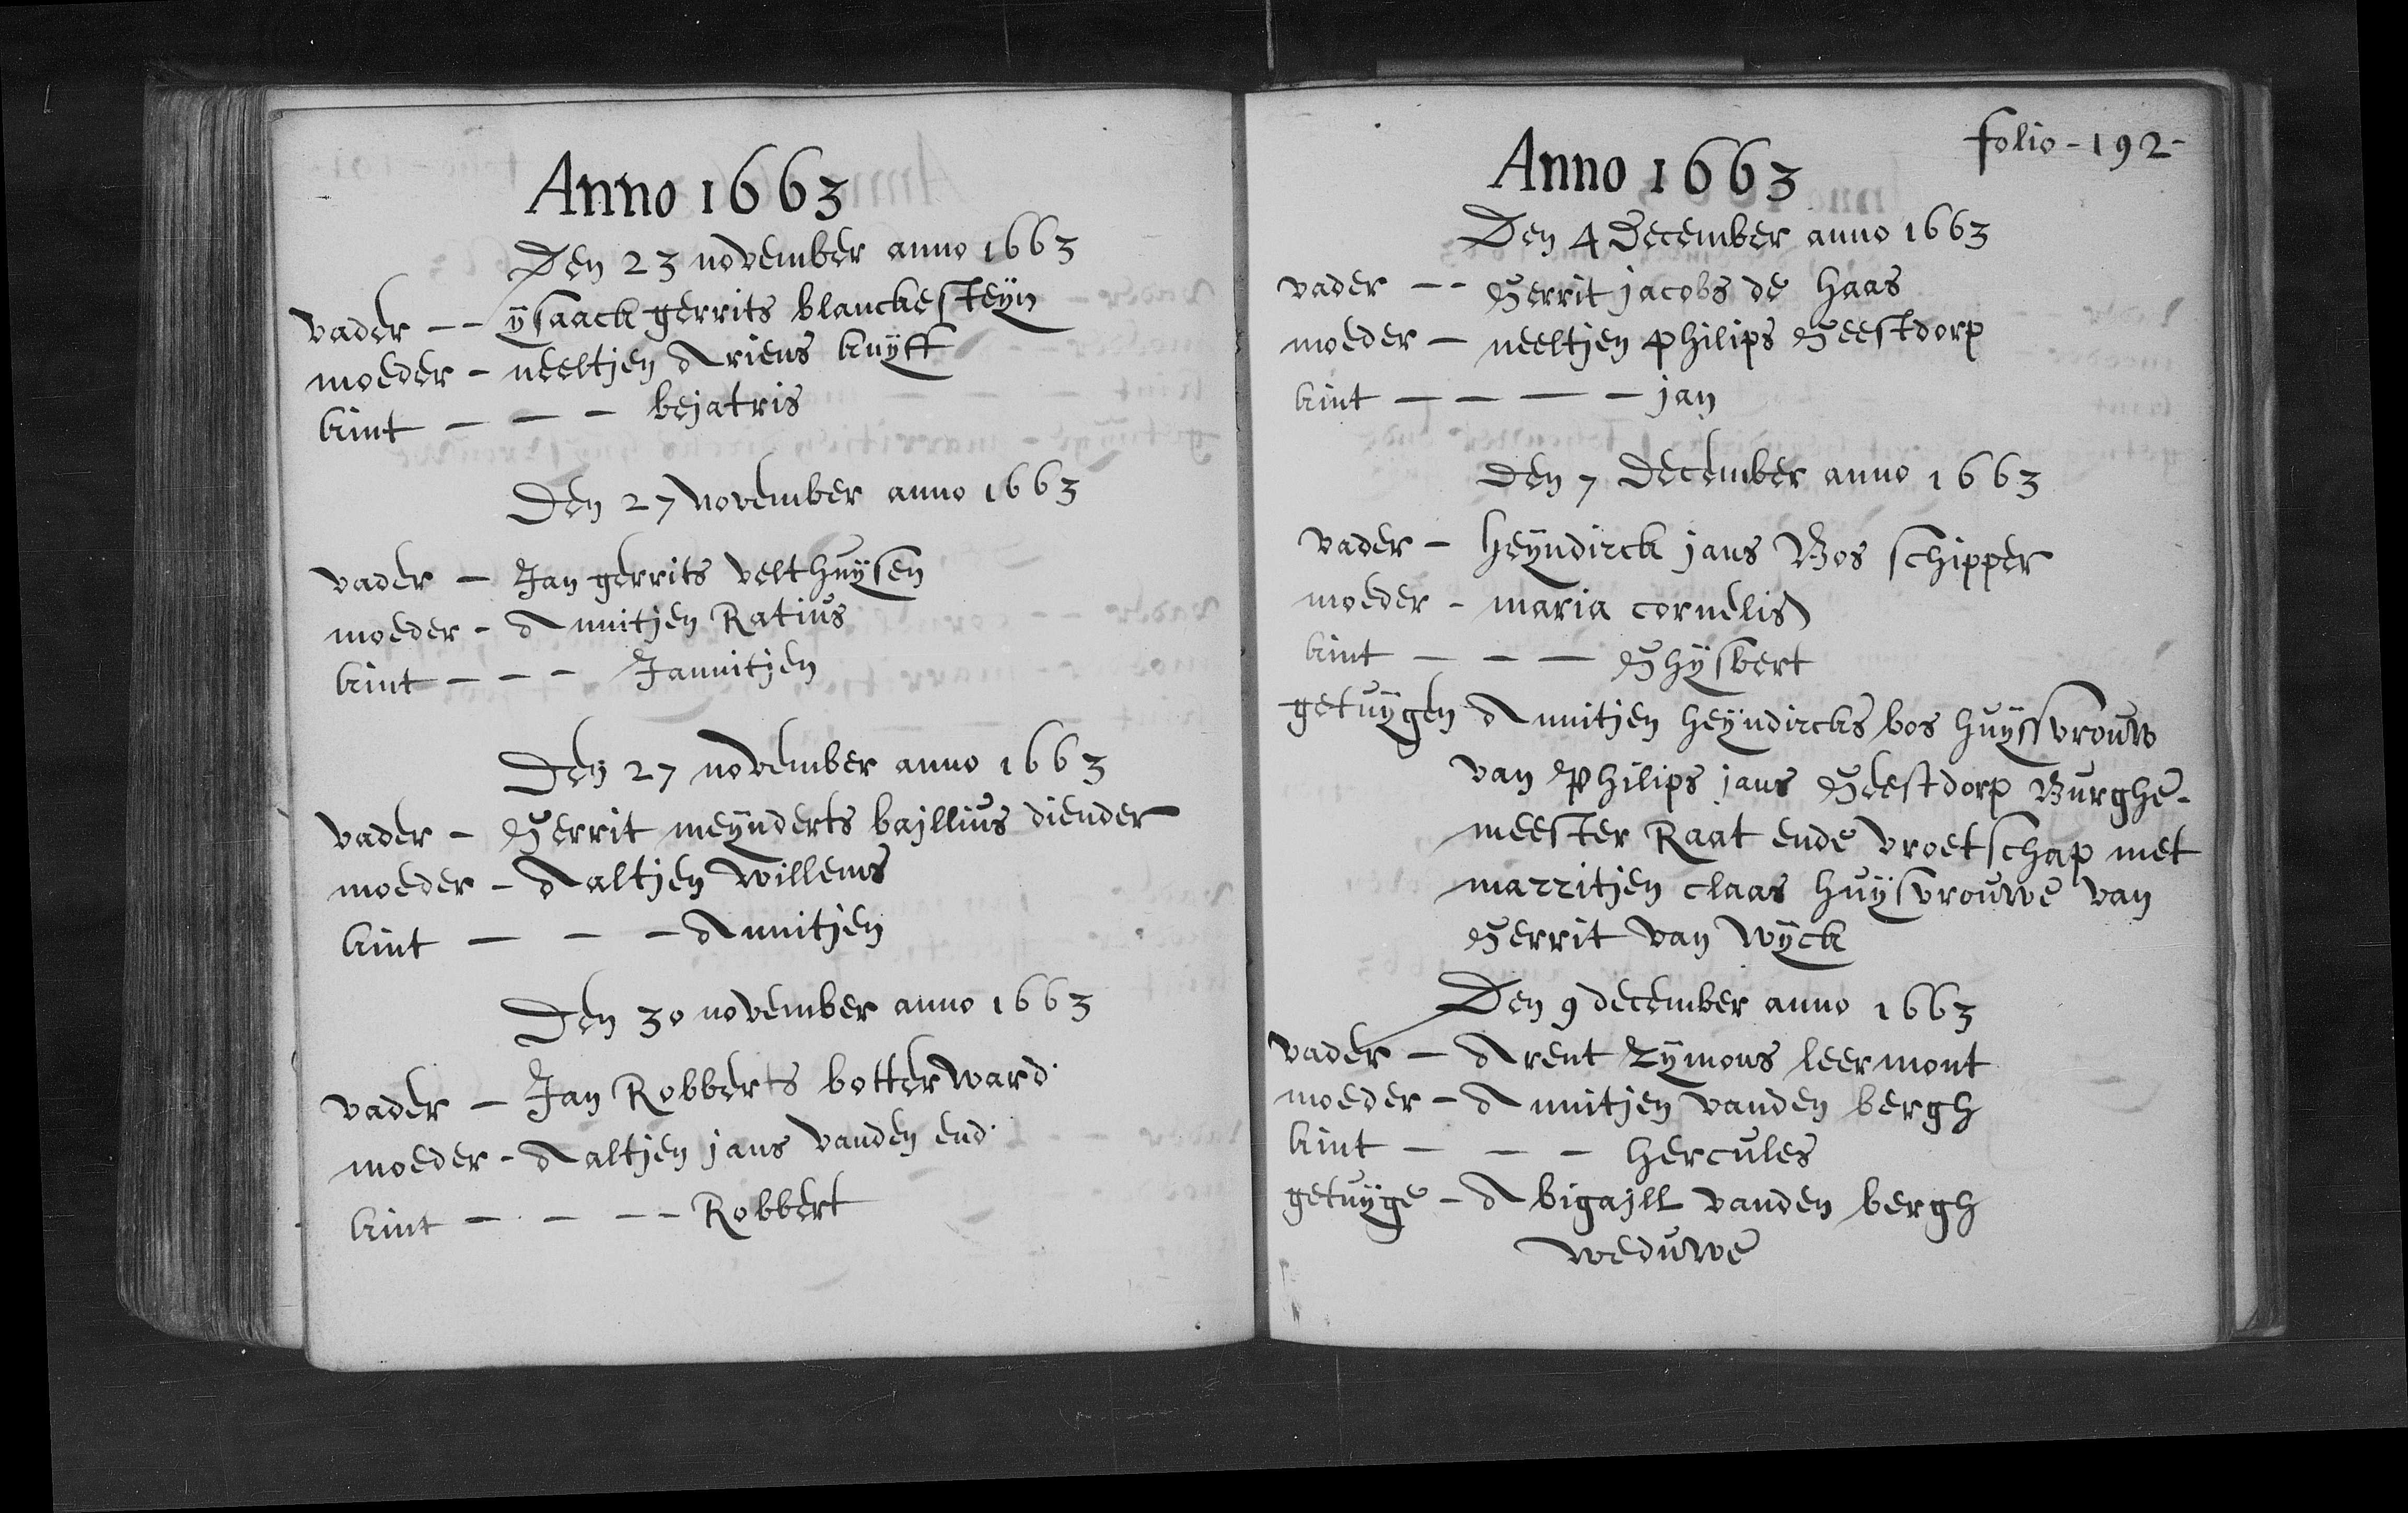 Anno 1663
Den 23 november anno 1663
vader -- ÿsaack gerrits blanckesteÿn
moeder - neeltjen Ariens knÿff
kint - - - bejatris
Den 27 november anno 1663
vader - Jan gerrits velthuÿsen
moeder - Annitjen Ratius
kint - - - Jannitjen
Den 27 november anno 1663
vader - Gerrit meÿnderts bajllius diender
moeder - Aaltjen Willems
kint - - - Annitjen
Den 30 november anno 1663
vader - Jan Robberts botterward.
moeder - Aaltjen jans vanden end.
kint - - -- Robbert
folio - 192 -
Anno 1663
Den 4 December anno 1663
vader -- Gerrit jacobs de haas
moeder - neeltjen philips Geestdorp
kint - - - - jan
Den 7 December anno 1663
vader - heÿndirck jans Bos schipper
moeder - maria cornelis
kint - - - Ghÿsbert
getuÿgen Annitjen heÿndircks bos huÿssvrouw
van Philips jans Geestdorp Burghe-
meester Raat ende vroetschap met
marritjen claas huÿsvrouwe van
Gerrit van Wÿck
Den 9 december anno 1663
vader - Arent Tÿmons leermont
moeder - Annitjen vanden bergh
kint - - - hercules
getuÿge - Abigajll vanden bergh
weduwe